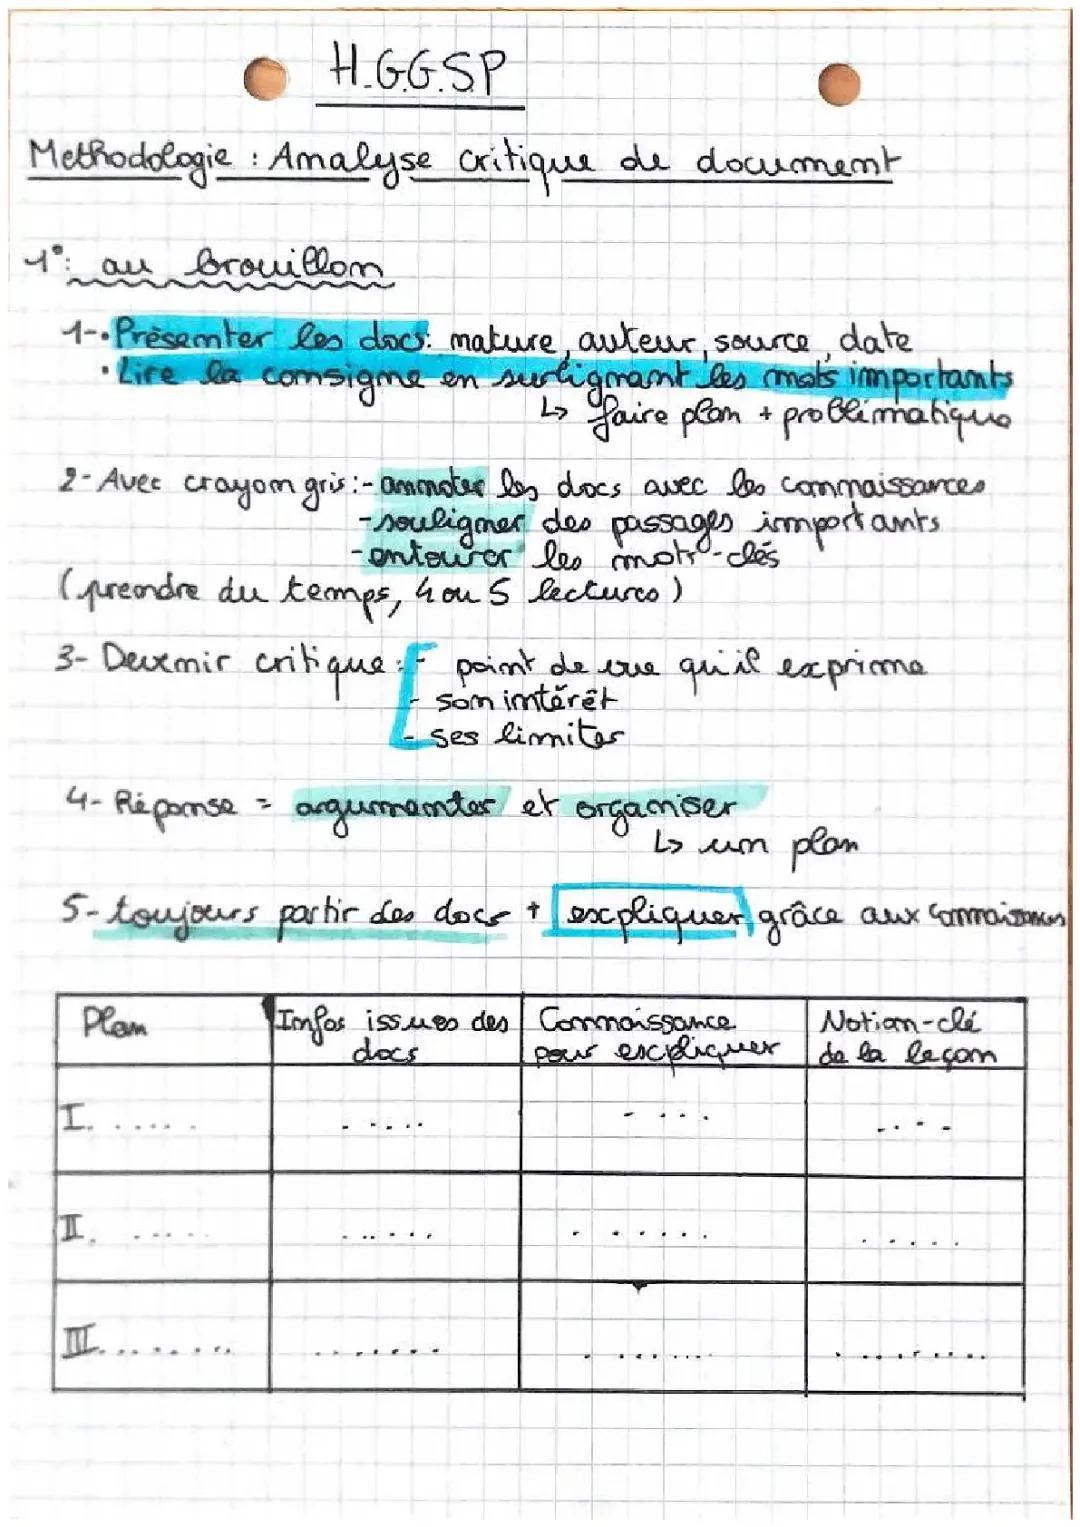 H.G.G.S.P
Methodologie : Analyse critique de document
1°: au brouillon
1-• Présenter les docs: nature, auteur, source, date
• Lire la consigne en surlignant les mots importants
↳ faire plan + problématique
2- Avec crayon gris: - annoter les docs avec les connaissances
- souligner des passages importants
- entourer les mots-clés
(prendre du temps, 4 ou 5 lectures)
3- Devenir critique : - point de vue qu'il exprime
- son intérêt
- ses limites
4- Réponse = argumenter et organiser
↳ un plan
5- toujours partir des docs + expliquer grâce aux connaissances
Plan | Infos issues des docs | Connaissance pour expliquer | Notion-clé de la leçon
I. ..... | ..... | ..... | .....
II. ..... | ..... | ...... | .....
III. ........ | ....... | ....... | ........